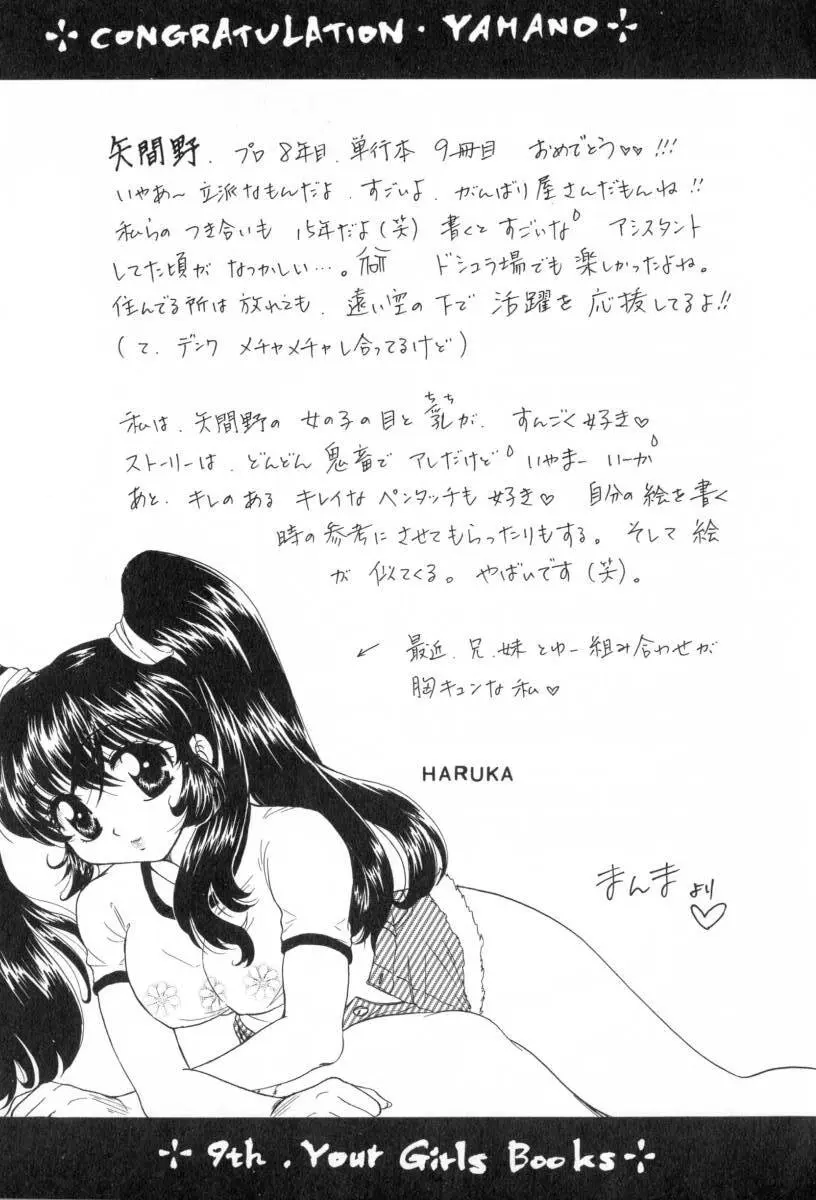 CONGRATULATION・YAMANO
矢間野、プロ8年目、単行本9冊目 おめでとう♡♡!!!
いやあ〜立派なもんだよ、すごいよ、がんばり屋さんだもんね!!
私らのつき合いも 15年だよ(笑) 書くとすごいな アシスタント
してた頃がなつかしい…。 ドシュラ場でも楽しかったよね。
住んでる所は放れても、遠い空の下で活躍を応援してるよ!!
(て、デンワ メチャメチャし合ってるけど)
私は、矢間野の女の子の目と乳(ちち)が、すんごく好き♡
ストーリーは、どんどん鬼畜でアレだけど いやまー いーか
あと、キレのある キレイなペンタッチも好き♡ 自分の絵を書く
時の参考にさせてもらったりもする。そして絵
が 似てくる。やばいです(笑)。
← 最近、兄、妹とゆー組み合わせが
胸キュンな私♡
HARUKA
まんまより♡
9th . Your Girls Books